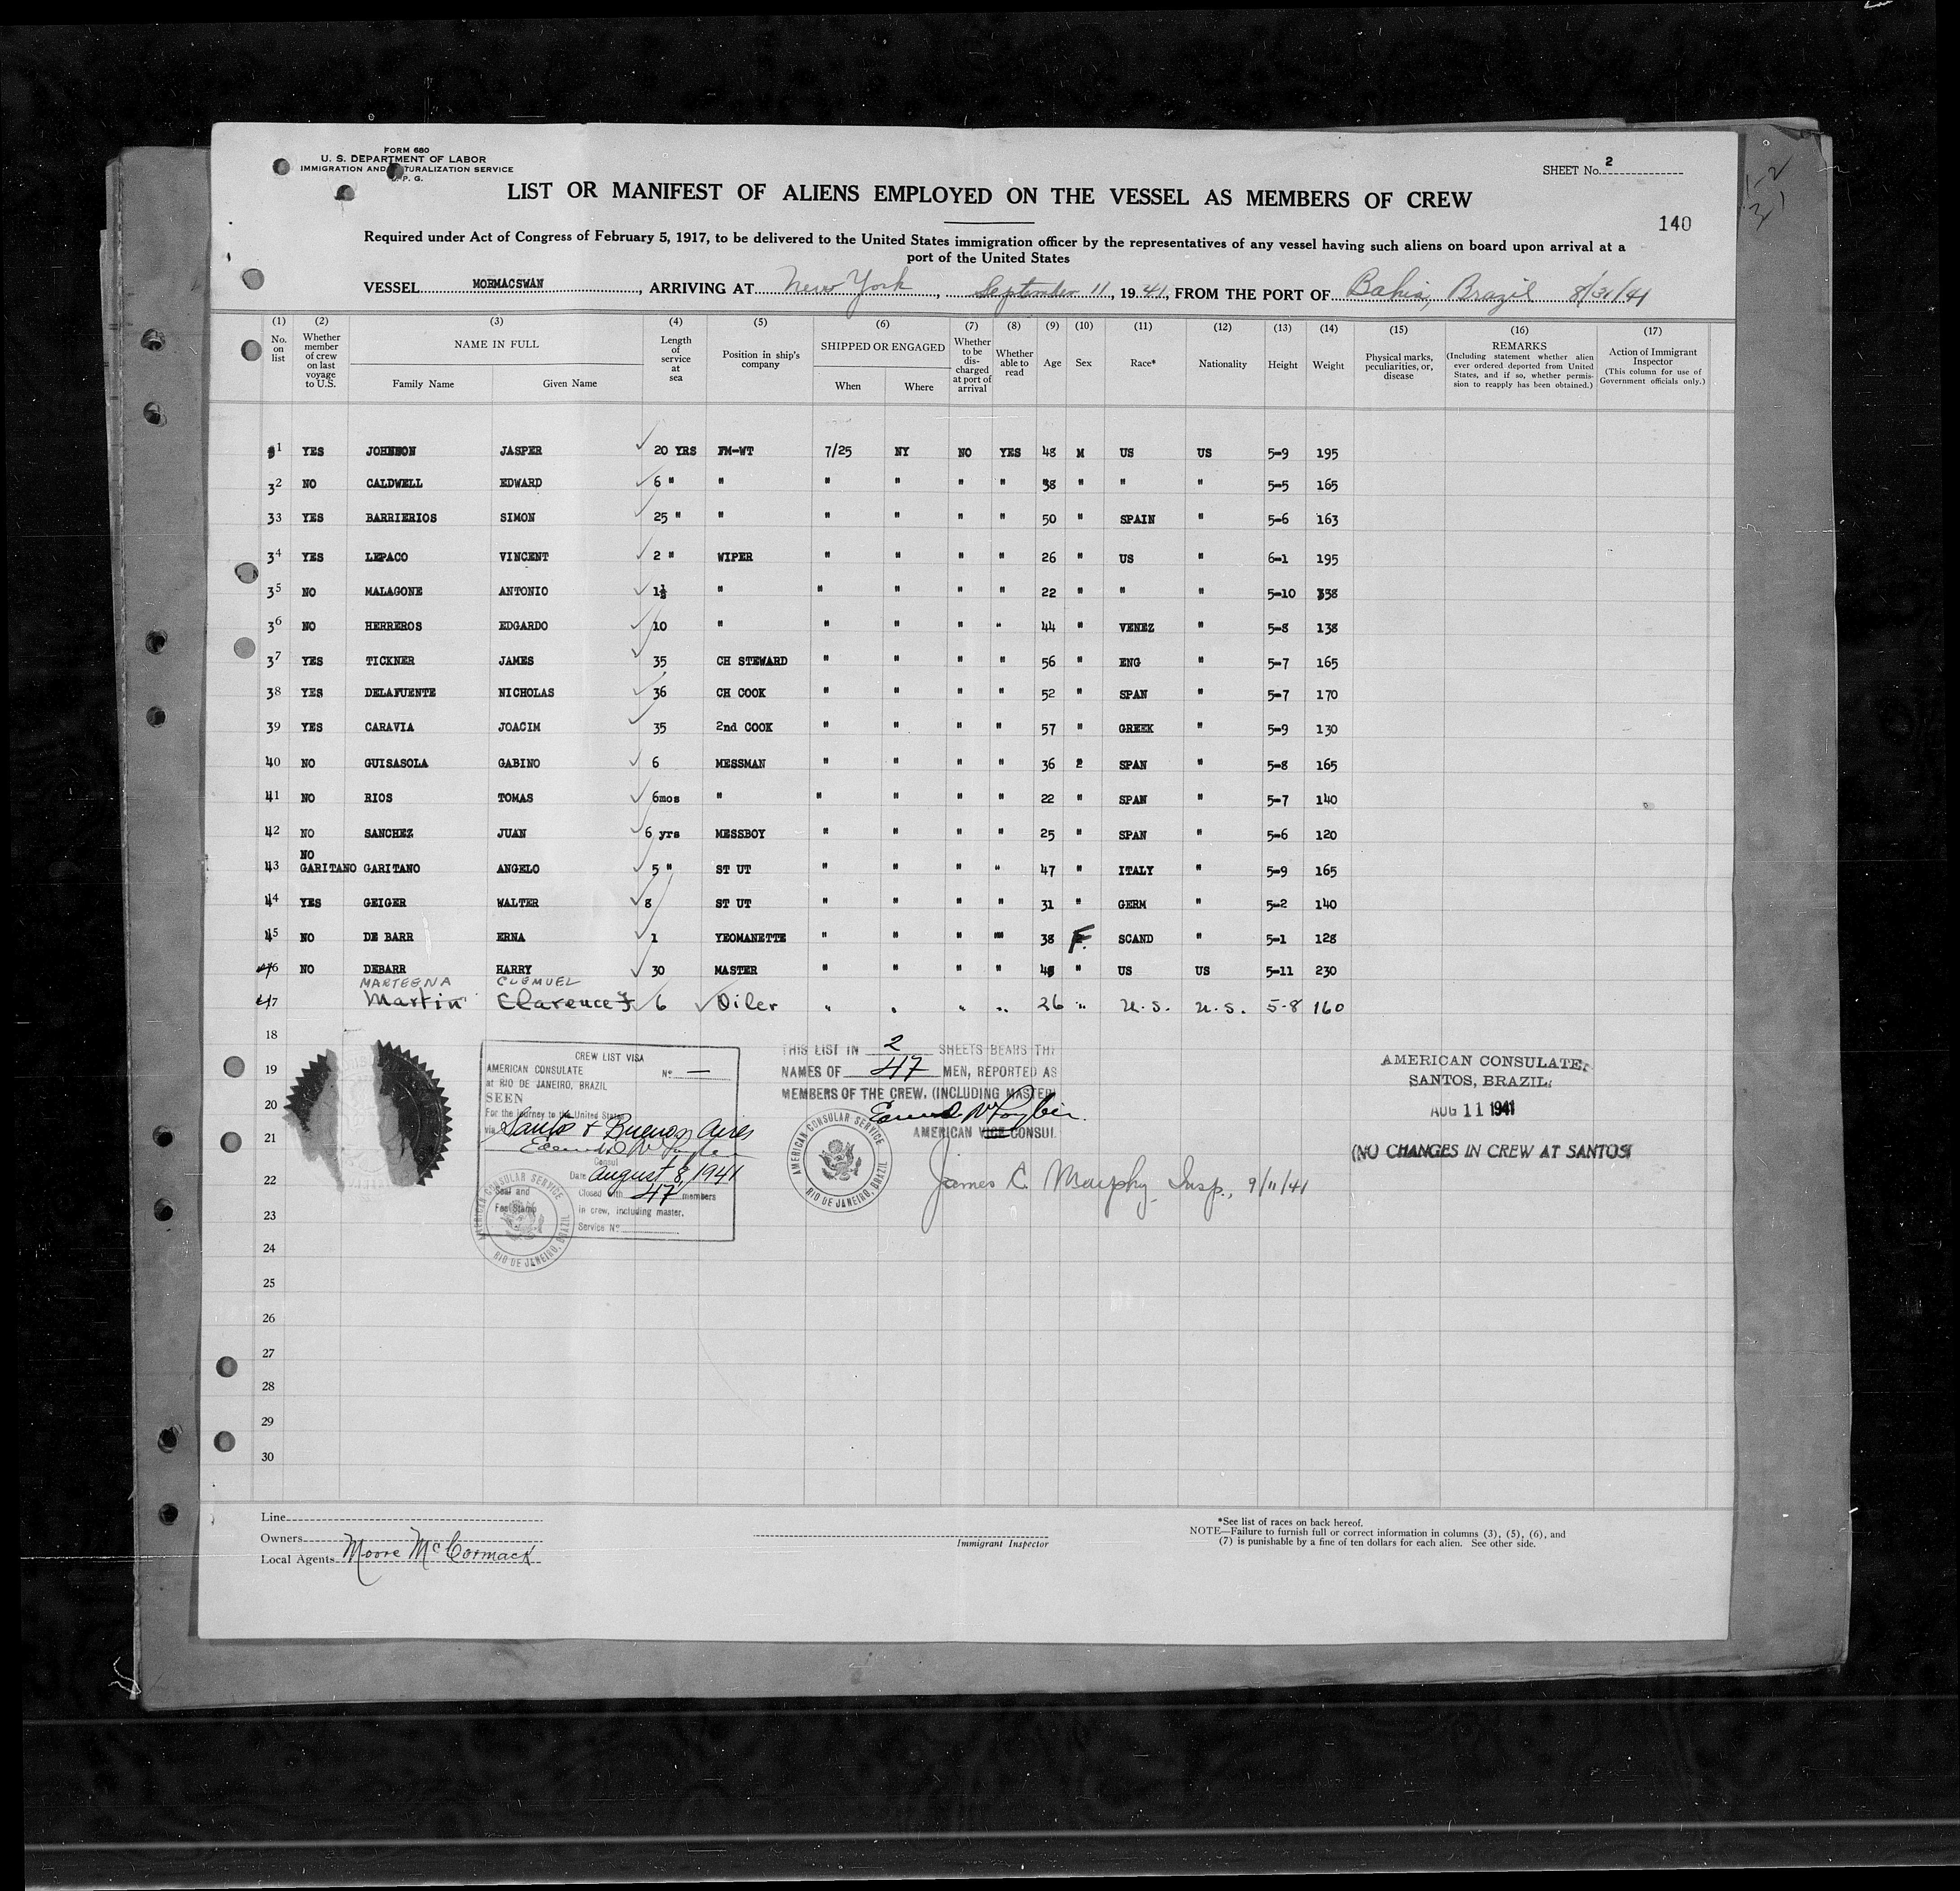 FORM 680
U. S. DEPARTMENT OF LABOR
IMMIGRATION AND NATURALIZATION SERVICE
P. G.
SHEET No. 2
LIST OR MANIFEST OF ALIENS EMPLOYED ON THE VESSEL AS MEMBERS OF CREW
140
Required under Act of Congress of February 5, 1917, to be delivered to the United States immigration officer by the representatives of any vessel having such aliens on board upon arrival at a
port of the United States
VESSEL MORMACSWAN, ARRIVING AT New York, September 11, 1941, FROM THE PORT OF Bahia, Brazil 8/31/41
(1) (2) (3) (4) (5) (6) (7) (8) (9) (10) (11) (12) (13) (14) (15) (16) (17)
No. on list
Whether member of crew on last voyage to U.S.
NAME IN FULL
Family Name Given Name
Length of service at sea
Position in ship's company
SHIPPED OR ENGAGED
When Where
Whether to be discharged at port of arrival
Whether able to read
Age
Sex
Race*
Nationality
Height
Weight
Physical marks, peculiarities, or, disease
REMARKS
(Including statement whether alien ever ordered deported from United States, and if so, whether permission to reapply has been obtained.)
Action of Immigrant Inspector
(This column for use of Government officials only.)
1 YES JOHNSON JASPER 20 YRS FM-WT 7/25 NY NO YES 48 M US US 5-9 195
32 NO CALDWELL EDWARD 6 " " " " " " 38 " " " 5-5 165
33 YES BARRIERIOS SIMON 25 " " " " " " 50 " SPAIN " 5-6 163
34 YES LEPACO VINCENT 2 " WIPER " " " " 26 " US " 6-1 195
35 NO MALAGONE ANTONIO 1½ " " " " " 22 " " " 5-10 338
36 NO HERREROS EDGARDO 10 " " " " " 44 " VENEZ " 5-8 138
37 YES TICKNER JAMES 35 CH STEWARD " " " " 56 " ENG " 5-7 165
38 YES DELAFUENTE NICHOLAS 36 CH COOK " " " " 52 " SPAN " 5-7 170
39 YES CARAVIA JOACIM 35 2nd COOK " " " " 57 " GREEK " 5-9 130
40 NO GUISASOLA GABINO 6 MESSMAN " " " " 36 2 SPAN " 5-8 165
41 NO RIOS TOMAS 6mos " " " " " 22 " SPAN " 5-7 140
42 NO SANCHEZ JUAN 6 yrs MESSBOY " " " " 25 " SPAN " 5-6 120
NO
43 GARITANO GARITANO ANGELO 5 " ST UT " " " " 47 " ITALY " 5-9 165
44 YES GEIGER WALTER 8 ST UT " " " " 31 " GERM " 5-2 140
45 NO DE BARR ERNA 1 YEOMANETTE " " " " 38 F. SCAND " 5-1 128
46 NO DEBARR HARRY 30 MASTER " " " " 48 " US US 5-11 230
MARTEENA CLEMUEL
47 Martin Clarence F 6 Oiler " " " " 26 " U.S. U.S. 5-8 160
18
19
20
21
22
23
24
25
26
27
28
29
30
CREW LIST VISA
AMERICAN CONSULATE Nº —
at RIO DE JANEIRO, BRAZIL
SEEN
For the journey to the United States
via Santos & Buenos Aires
Consul
Date August 8, 1941
Seal and Fee Stamp
Closed with 47 members
in crew, including master.
Service Nº
AMERICAN CONSULAR SERVICE
RIO DE JANEIRO, BRAZIL
THIS LIST IN 2 SHEETS BEARS THE
NAMES OF 47 MEN, REPORTED AS
MEMBERS OF THE CREW, (INCLUDING MASTER)
AMERICAN VICE CONSUL
AMERICAN CONSULAR SERVICE
RIO DE JANEIRO, BRAZIL
James C. Murphy Insp., 9/11/41
AMERICAN CONSULATE,
SANTOS, BRAZIL.
AUG 11 1941
(NO CHANGES IN CREW AT SANTOS)
Line
Owners
Local Agents Moore McCormack
Immigrant Inspector
*See list of races on back hereof.
NOTE—Failure to furnish full or correct information in columns (3), (5), (6), and
(7) is punishable by a fine of ten dollars for each alien. See other side.